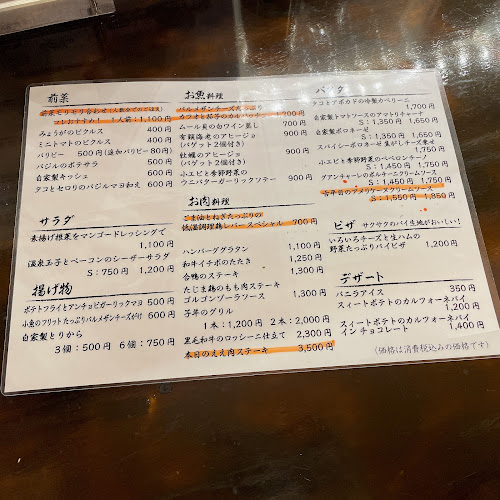 前菜
前菜モリモリ合わせ(人数分でのご注文)
1人前 1,100円
みょうがのピクルス 400円
ミニトマトのピクルス 400円
バリビー 500円(追加バリビー80円)
バジルのポテサラ 500円
自家製キッシュ 600円
タコとセロリのバジルマヨ和え 600円
サラダ
素揚げ根菜をマンゴードレッシングで
1,100円
温泉玉子とベーコンのシーザーサラダ
S:750円 1,200円
揚げ物
ポテトフライとアンチョビガーリックマヨ 500円
小魚のフリットたっぷりパルメザンチーズがけ 600円
自家製とりから
3個:500円 6個:750円
お魚料理
パルメザンチーズたっぷり
カツオと茄子のカルパッチョ 1,700円
ムール貝の白ワイン蒸し 700円
有頭海老のアヒージョ 900円
(バゲット2個付き)
牡蠣のアヒージョ 900円
(バゲット2個付き)
小エビと季節野菜の
ウニバターガーリックソテー 900円
お肉料理
ごま油とねぎたっぷりの
低温調理鶏レバースペシャル 700円
ハンバーググラタン 1,100円
和牛イチボのたたき 1,250円
合鴨のステーキ 1,300円
たじま鶏のもも肉ステーキ
ゴルゴンゾーラソース 1,300円
子羊のグリル
1本:1,200円 2本:2,000円
黒毛和牛のロッシーニ仕立て 2,300円
本日のええ肉ステーキ 3,500円
パスタ
タコとアボカドの冷製カペリーニ
1,700円
自家製トマトソースのアマトリチャーナ
S:1,350円 1,650円
自家製ボロネーゼ S:1,350円 1,650円
スパイシーボロネーゼ 焦がしチーズ乗せ
1,750円
小エビと季節野菜のペペロンチーノ
S:1,450円 1,750円
グアンチャーレのポルチーニクリームソース
S:1,450円 1,750円
渡り蟹のアメリケーヌクリームソース
S:1,550円 1,850円
ピザ サクサクのパイ生地がおいしい!
いろいろチーズと生ハムの
野菜たっぷりパイピザ 1,200円
デザート
バニラアイス 350円
スィートポテトのカルフォーネパイ
1,200円
スィートポテトのカルフォーネパイ
イン チョコレート 1,400円
(価格は消費税込みの価格です)